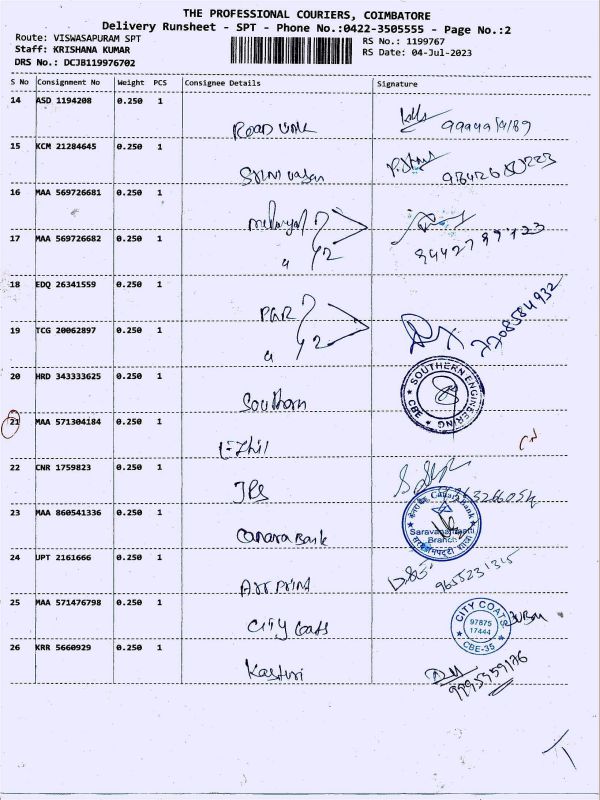 THE PROFESSIONAL COURIERS, COIMBATORE
Delivery Runsheet - SPT - Phone No.:0422-3505555 - Page No.:2
Route: VISWASAPURAM SPT
Staff: KRISHANA KUMAR
DRS No.: DCJB119976702
RS No.: 1199767
RS Date: 04-Jul-2023
S No Consignment No Weight PCS Consignee Details Signature
14 ASD 1194208 0.250 1
15 KCM 21284645 0.250 1
16 MAA 569726681 0.250 1
17 MAA 569726682 0.250 1
18 EDQ 26341559 0.250 1
PGR
7708584932
19 TCG 20062897 0.250 1
20 HRD 343333625 0.250 1
Southern
SOUTHERN ENGINEERING
CBE
21 MAA 571304184 0.250 1
Ezhil
22 CNR 1759823 0.250 1
23 MAA 860541336 0.250 1
Canara Bank
Canara Bank
Branch
24 UPT 2161666 0.250 1
Art Print
9655231315
25 MAA 571476798 0.250 1
City Coats
CITY COATS
97875
17444
CBE-35
26 KRR 5660929 0.250 1
Kasturi